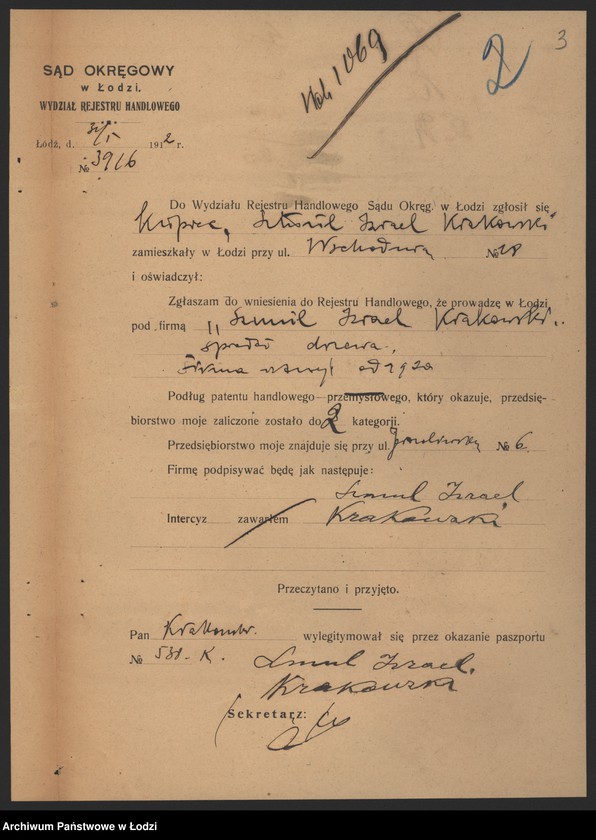 3
2
1069
SĄD OKRĘGOWY
w Łodzi.
WYDZIAŁ REJESTRU HANDLOWEGO
Łódź, d. 31/I 1912 r.
№ 3916
Do Wydziału Rejestru Handlowego Sądu Okręg. w Łodzi zgłosił się
Kupiec, Szmul Izrael Krakowski
zamieszkały w Łodzi przy ul. Wschodnia № 18
i oświadczył:
Zgłaszam do wniesienia do Rejestru Handlowego, że prowadzę w Łodzi
pod firmą „Szmul Izrael Krakowski"
drzewa.
Firma od 1920
Podług patentu handlowego—przemysłowego, który okazuje, przedsię-
biorstwo moje zaliczone zostało do 2 kategorji.
Przedsiębiorstwo moje znajduje się przy ul. № 6.
Firmę podpisywać będę jak następuje:
Szmul Izrael
Krakowski
Intercyz zawarłem
Przeczytano i przyjęto.
Pan Krakowski wylegitymował się przez okazanie paszportu
№ 531-K. Szmul Izrael
Krakowski
Sekretarz:
Archiwum Państwowe w Łodzi